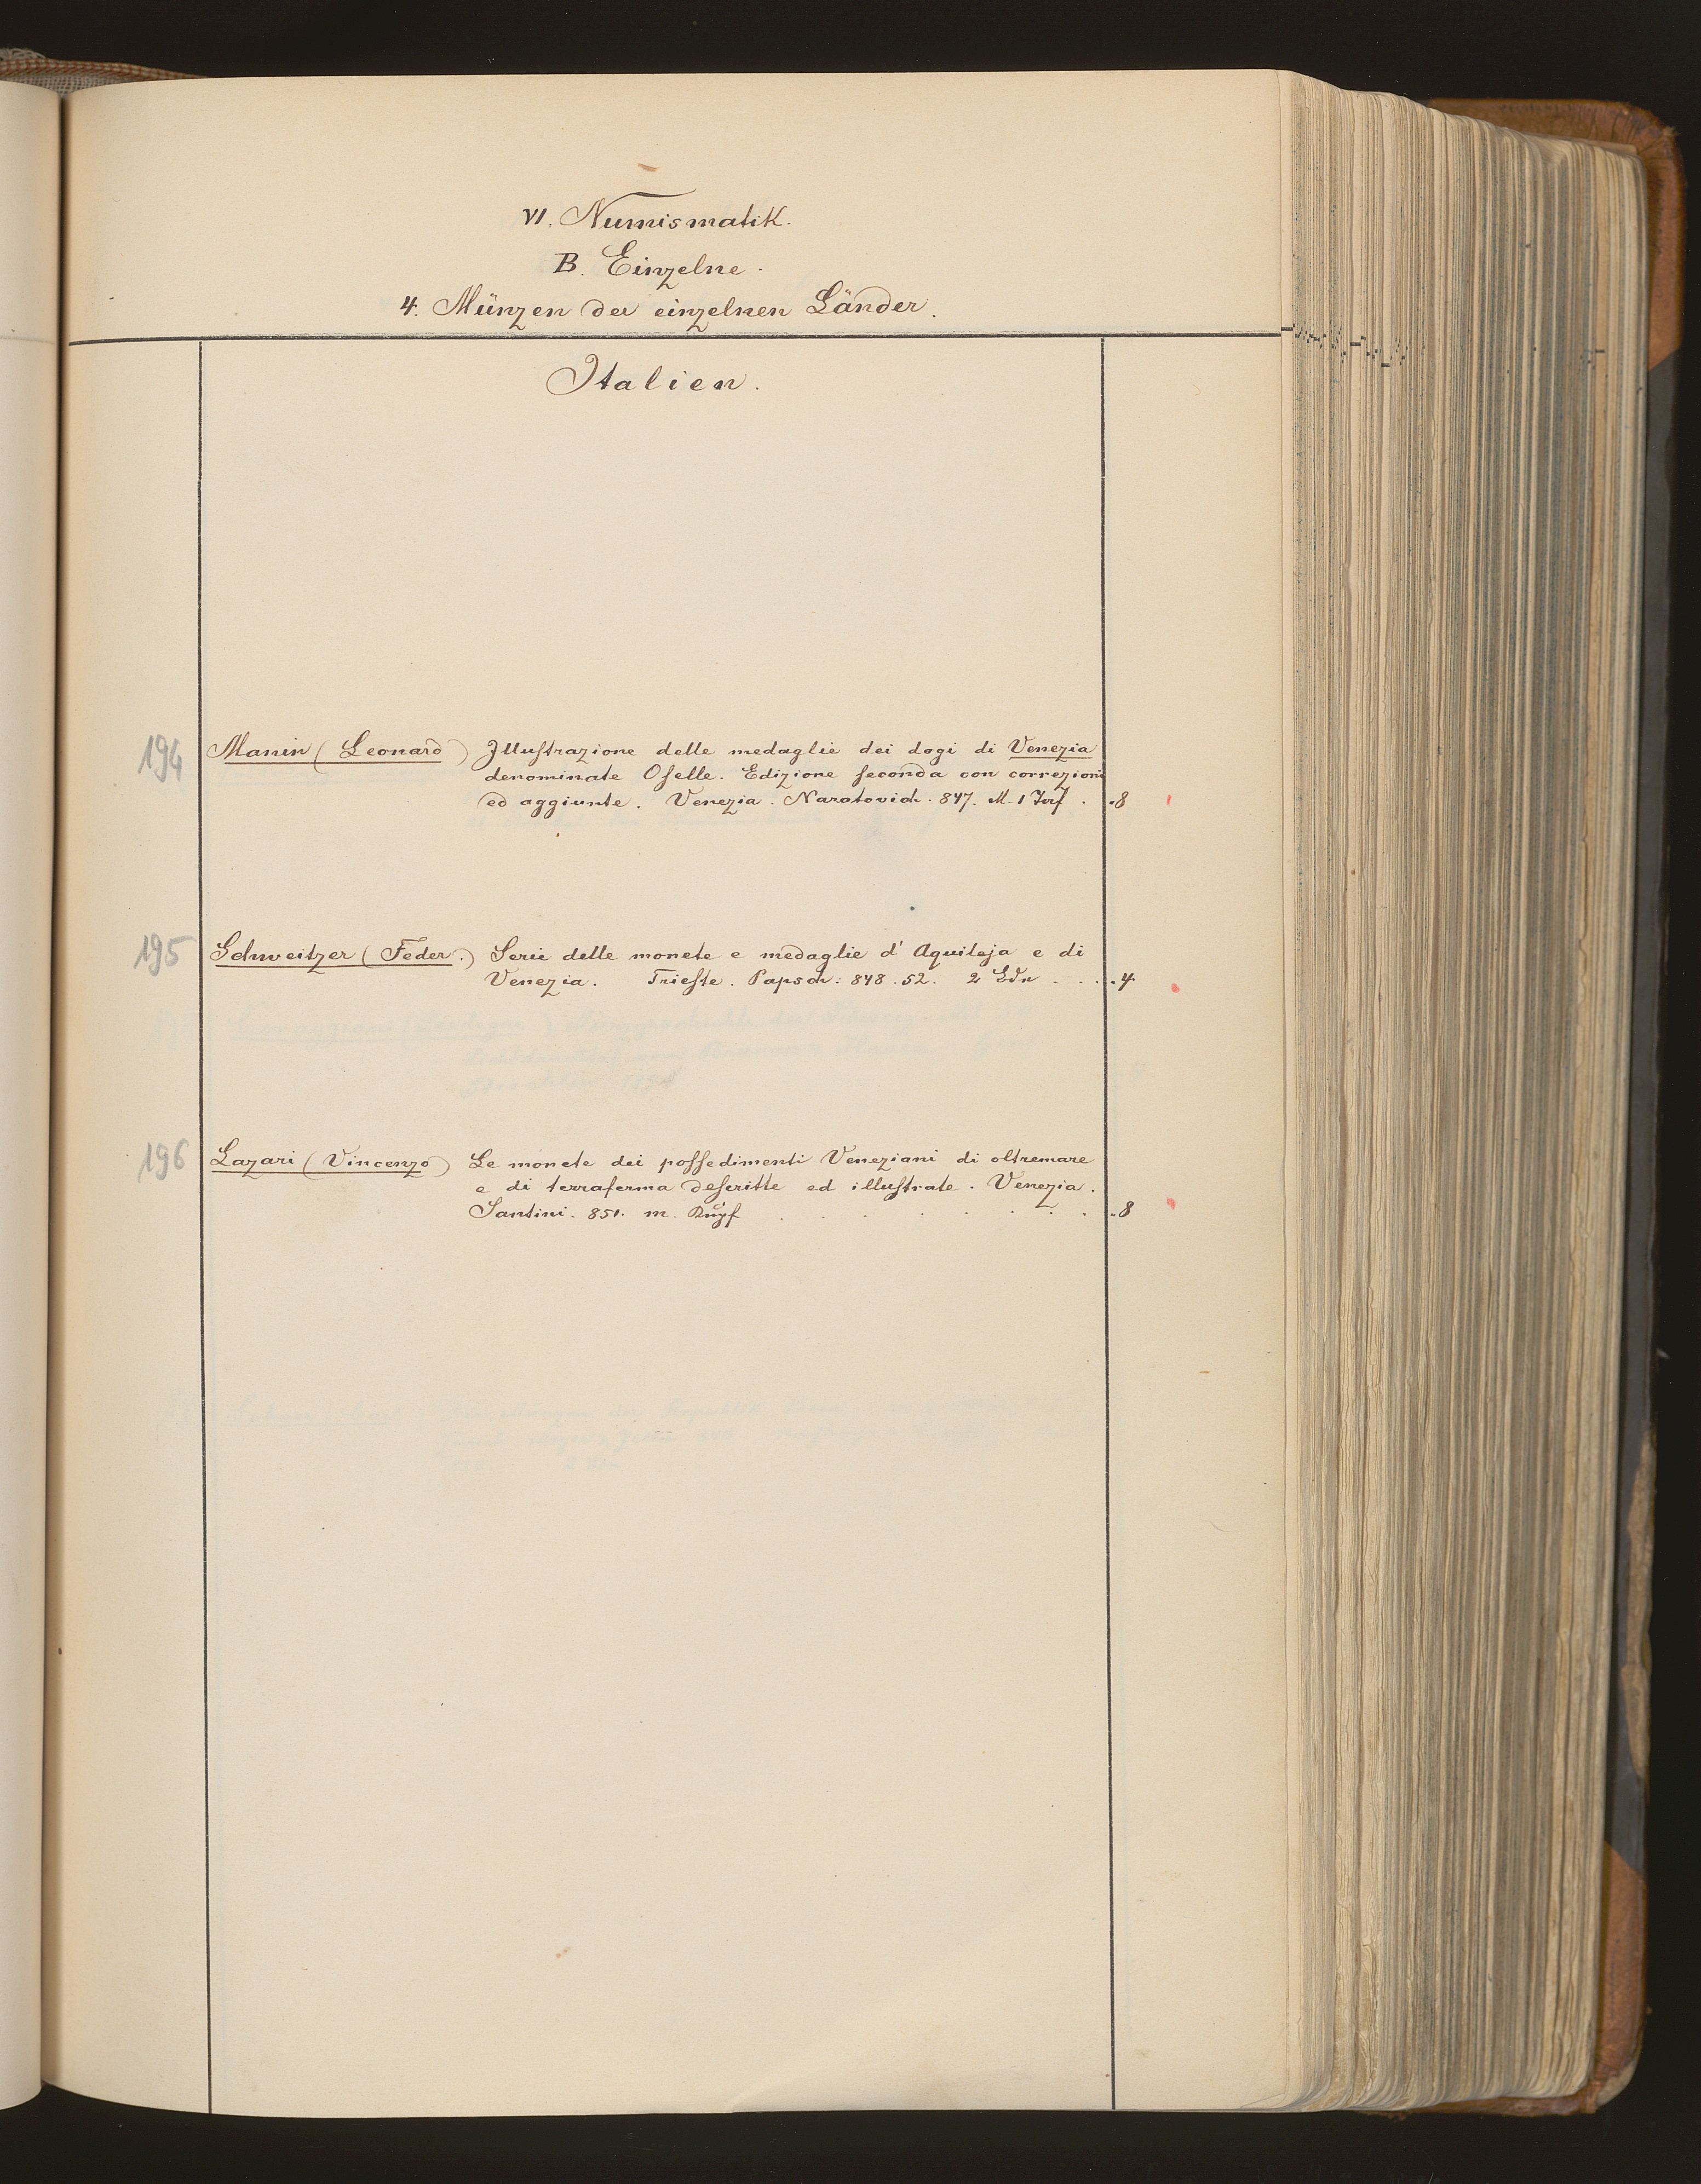 VI. Numismatik.
B. Einzelne.
4. Münzen der einzelnen Länder.
Italien.
194 Manin (Leonard) Illustrazione delle medaglie dei dogi di Venezia
denominate Oselle. Edizione seconda con correzioni
ed aggiunte. Venezia. Naratovich. 847. M. 1 . 8
195 Schweitzer (Feder.) Serie delle monete e medaglie d' Aquileja e di
Venezia. Trieste. Papsch: 848.52. 2 . . . . 4
196 Lazari (Vincenzo) Le monete dei possedimenti Veneziani di oltremare
e di terraferma descritte ed illustrate. Venezia.
Santini. 851. m. . . . . . . . . 8